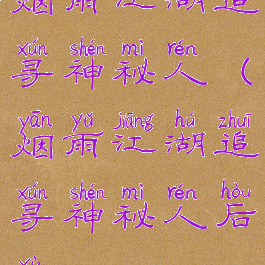 烟雨江湖追
xún shén mì rén
寻神秘人（
yān yǔ jiāng hú zhuī
烟雨江湖追
xún shén mì rén hòu
寻神秘人后
xù